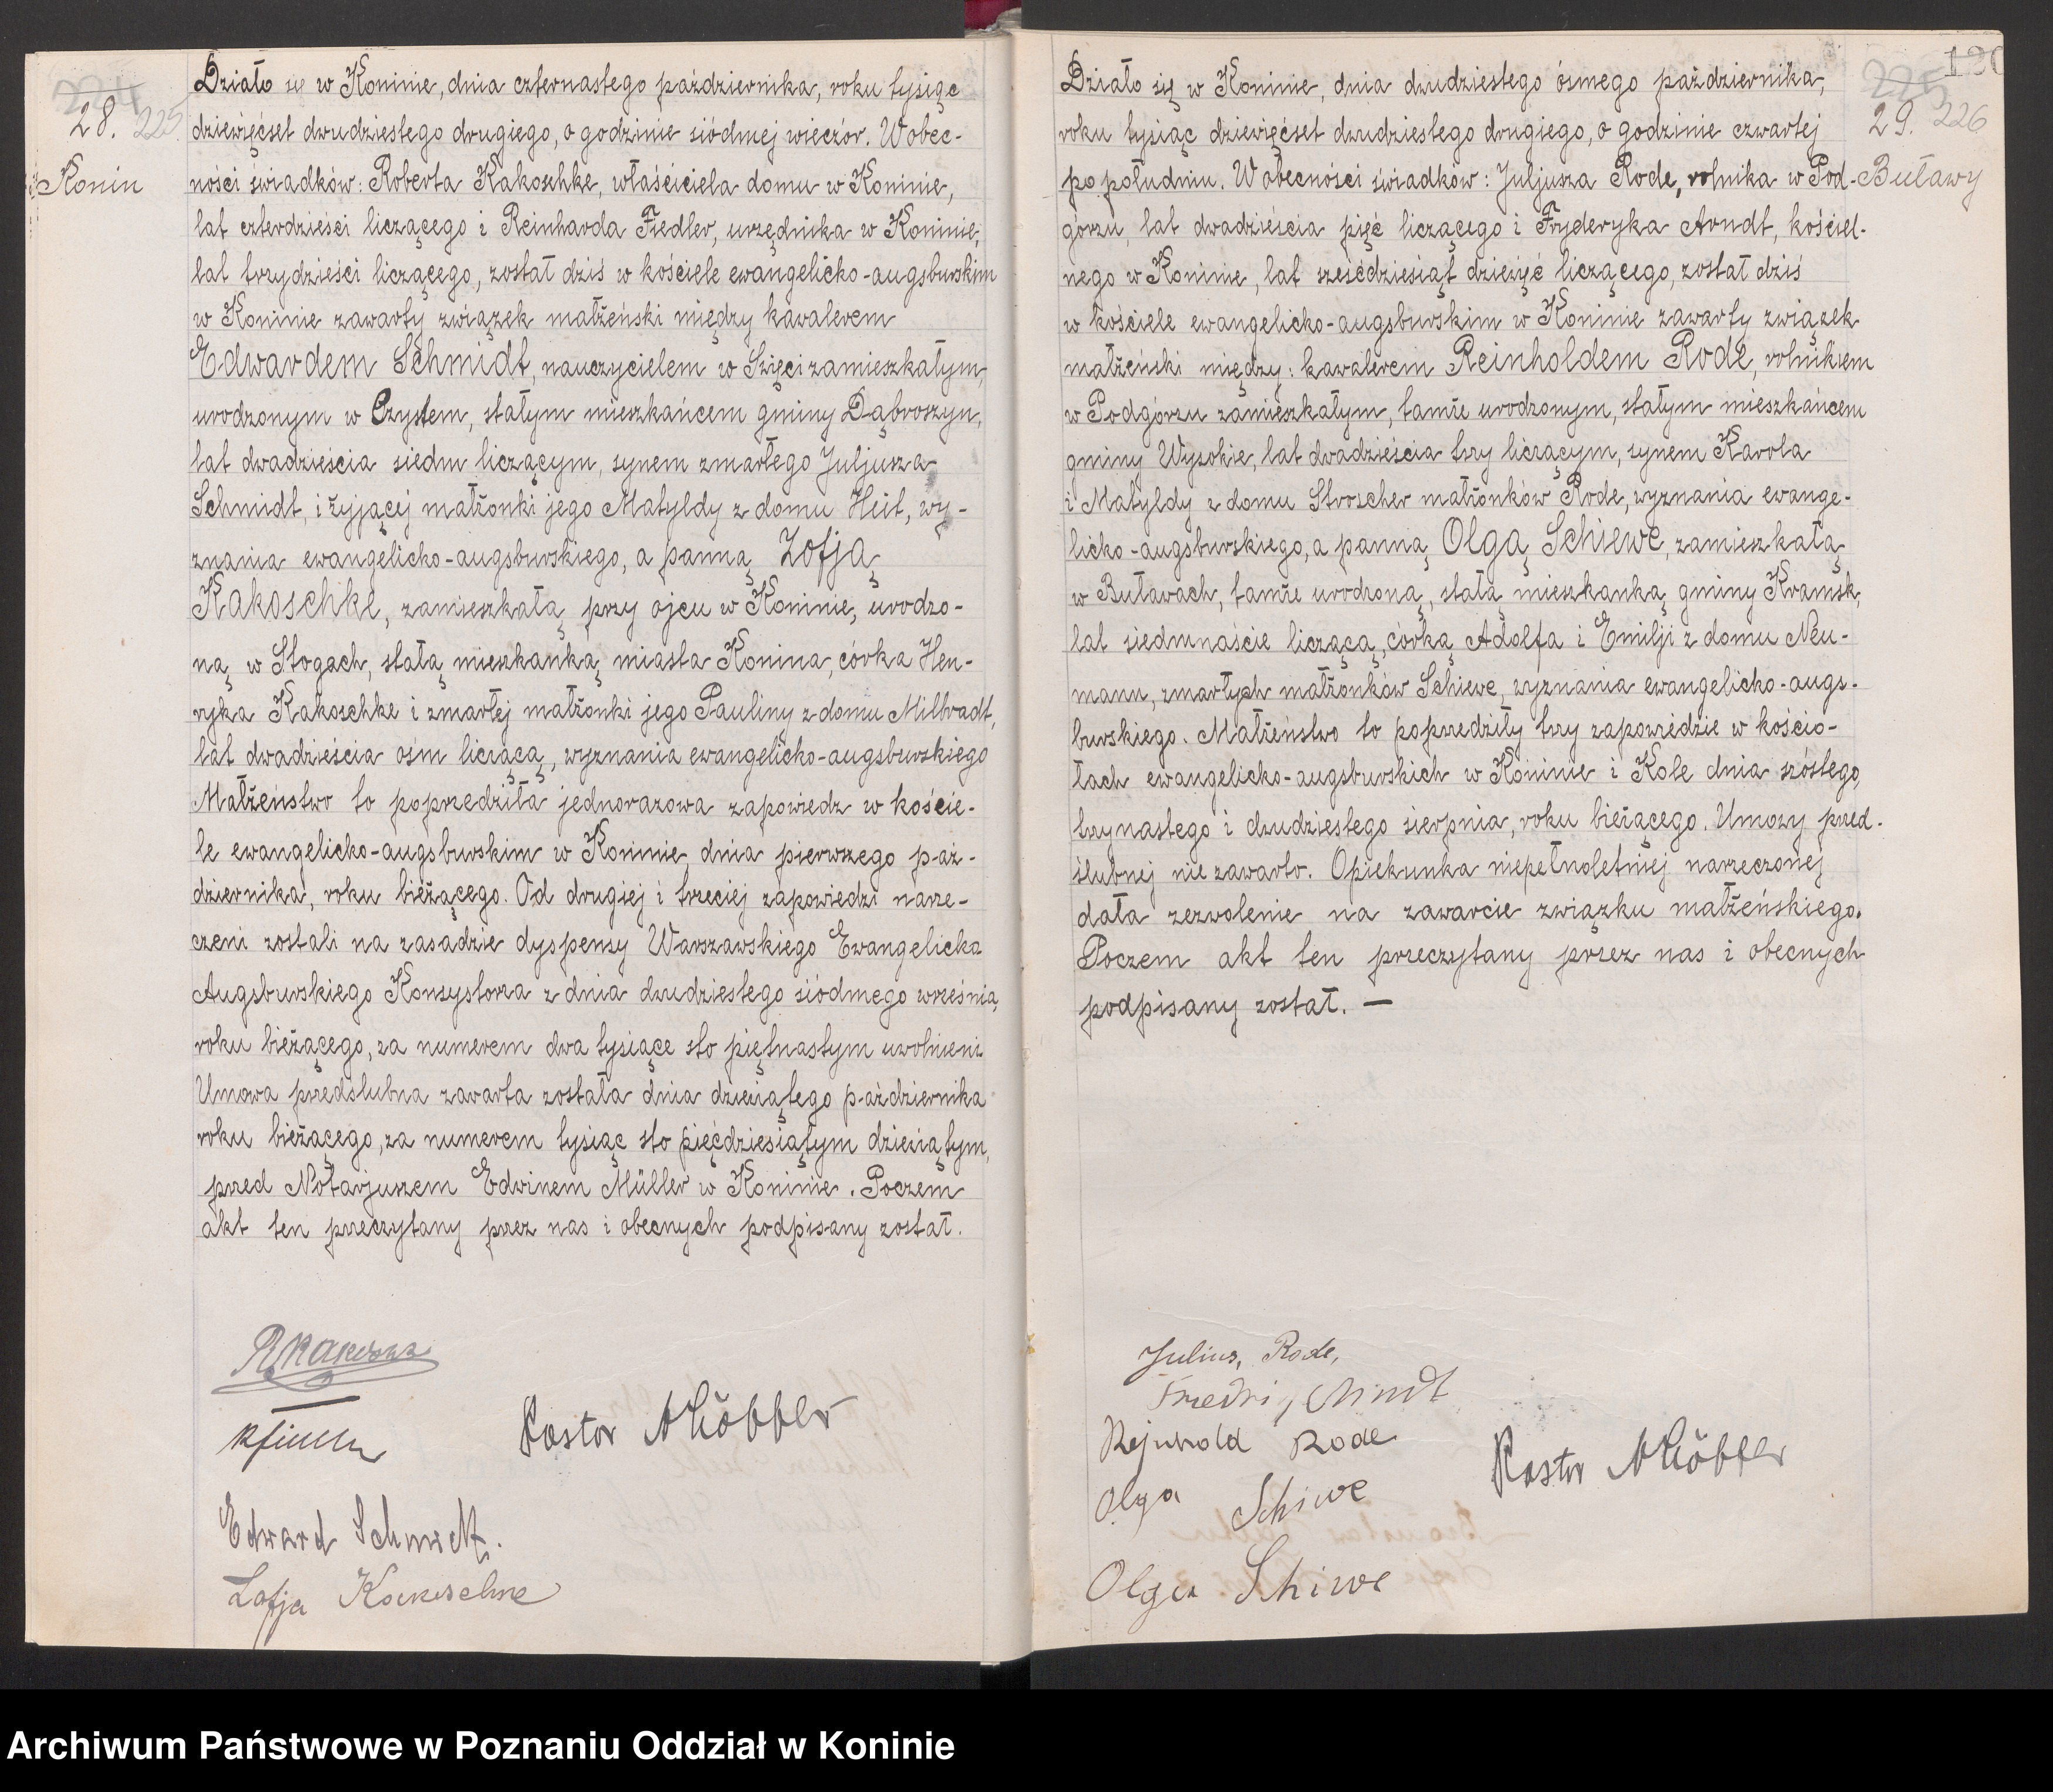 28. 225
Konin
Działo się w Koninie, dnia czternastego października, roku tysiąc
dziewięćset dwudziestego drugiego, o godzinie siódmej wieczór. W obec-
ności świadków: Roberta Kakoschke, właściciela domu w Koninie,
lat czterdzieści liczącego i Reinharda Fiedler, urzędnika w Koninie,
lat trzydzieści liczącego, został dziś w kościele ewangelicko-augsburskim
w Koninie zawarty związek małżeński między kawalerem
Edwardem Schmidt, nauczycielem w Święci zamieszkałym,
urodzonym w Czystem, stałym mieszkańcem gminy Dąbroszyn,
lat dwadzieścia siedm liczącym, synem zmarłego Juljusza
Schmidt, i żyjącej małżonki jego Matyldy z domu Heit, wy-
znania ewangelicko-augsburskiego, a panną Zofją
Kakoschke, zamieszkałą przy ojcu w Koninie, urodzo-
ną w Stogach, stałą mieszkanką miasta Konina, córka Hen-
ryka Kakoschke i zmarłej małżonki jego Pauliny z domu Milbradt,
lat dwadzieścia ośm liczącą, wyznania ewangelicko-augsburskiego
Małżeństwo to poprzedziła jednorazowa zapowiedz w koście-
le ewangelicko-augsburskim w Koninie dnia pierwszego paź-
dziernika, roku bieżącego. Od drugiej i trzeciej zapowiedzi narze-
czeni zostali na zasadzie dyspensy Warszawskiego Ewangelicka
Augsburskiego Konsystorza z dnia dwudziestego siódmego września,
roku bieżącego, za numerem dwa tysiące sto piętnastym uwolnieni
Umowa przedślubna zawarta została dnia dziewiątego października
roku bieżącego, za numerem tysiąc sto pięćdziesiątym dziewiątym,
przed Notarjuszem Edwinem Müller w Koninie. Poczem
akt ten przeczytany przez nas i obecnych podpisany został.
Pastor
Edward Schmidt.
Zofja Kakoschke
120
29. 226
Buławy
Działo się w Koninie, dnia dwudziestego ósmego października,
roku tysiąc dziewięćset dwudziestego drugiego, o godzinie czwartej
po południu. W obecności świadków: Juljusza Rode, rolnika w Pod-
górzu, lat dwadzieścia pięć liczącego i Fryderyka Arndt, kościel-
nego w Koninie, lat sześćdziesiąt dziewięć liczącego, został dziś
w kościele ewangelicko-augsburskim w Koninie zawarty związek
małżeński między: kawalerem Reinholdem Rode, rolnikiem
w Podgórzu zamieszkałym, tamże urodzonym, stałym mieszkańcem
gminy Wysokie, lat dwadzieścia trzy liczącym, synem Karola
i Matyldy z domu Stroscher małżonków Rode, wyznania ewange-
licko-augsburskiego, a panną Olgą Schiewe, zamieszkałą
w Buławach, tamże urodzoną, stałą mieszkanką gminy Kramsk,
lat siedmnaście liczącą, córką Adolfa i Emilji z domu Neu-
mann, zmarłych małżonków Schiewe, wyznania ewangelicko-augs-
burskiego. Małżeństwo to poprzedziły trzy zapowiedzie w kościo-
łach ewangelicko-augsburskich w Koninie i Kole dnia szóstego,
trzynastego i dwudziestego sierpnia, roku bieżącego. Umowy przed-
ślubnej nie zawarto. Opiekunka niepełnoletniej narzeczonej
dała zezwolenie na zawarcie związku małżeńskiego.
Poczem akt ten przeczytany przez nas i obecnych
podpisany został. —
Julius, Rode,
Arndt
Rejnhold Rode
Olga Schiwe
Pastor
Olga Schiwe
Archiwum Państwowe w Poznaniu Oddział w Koninie